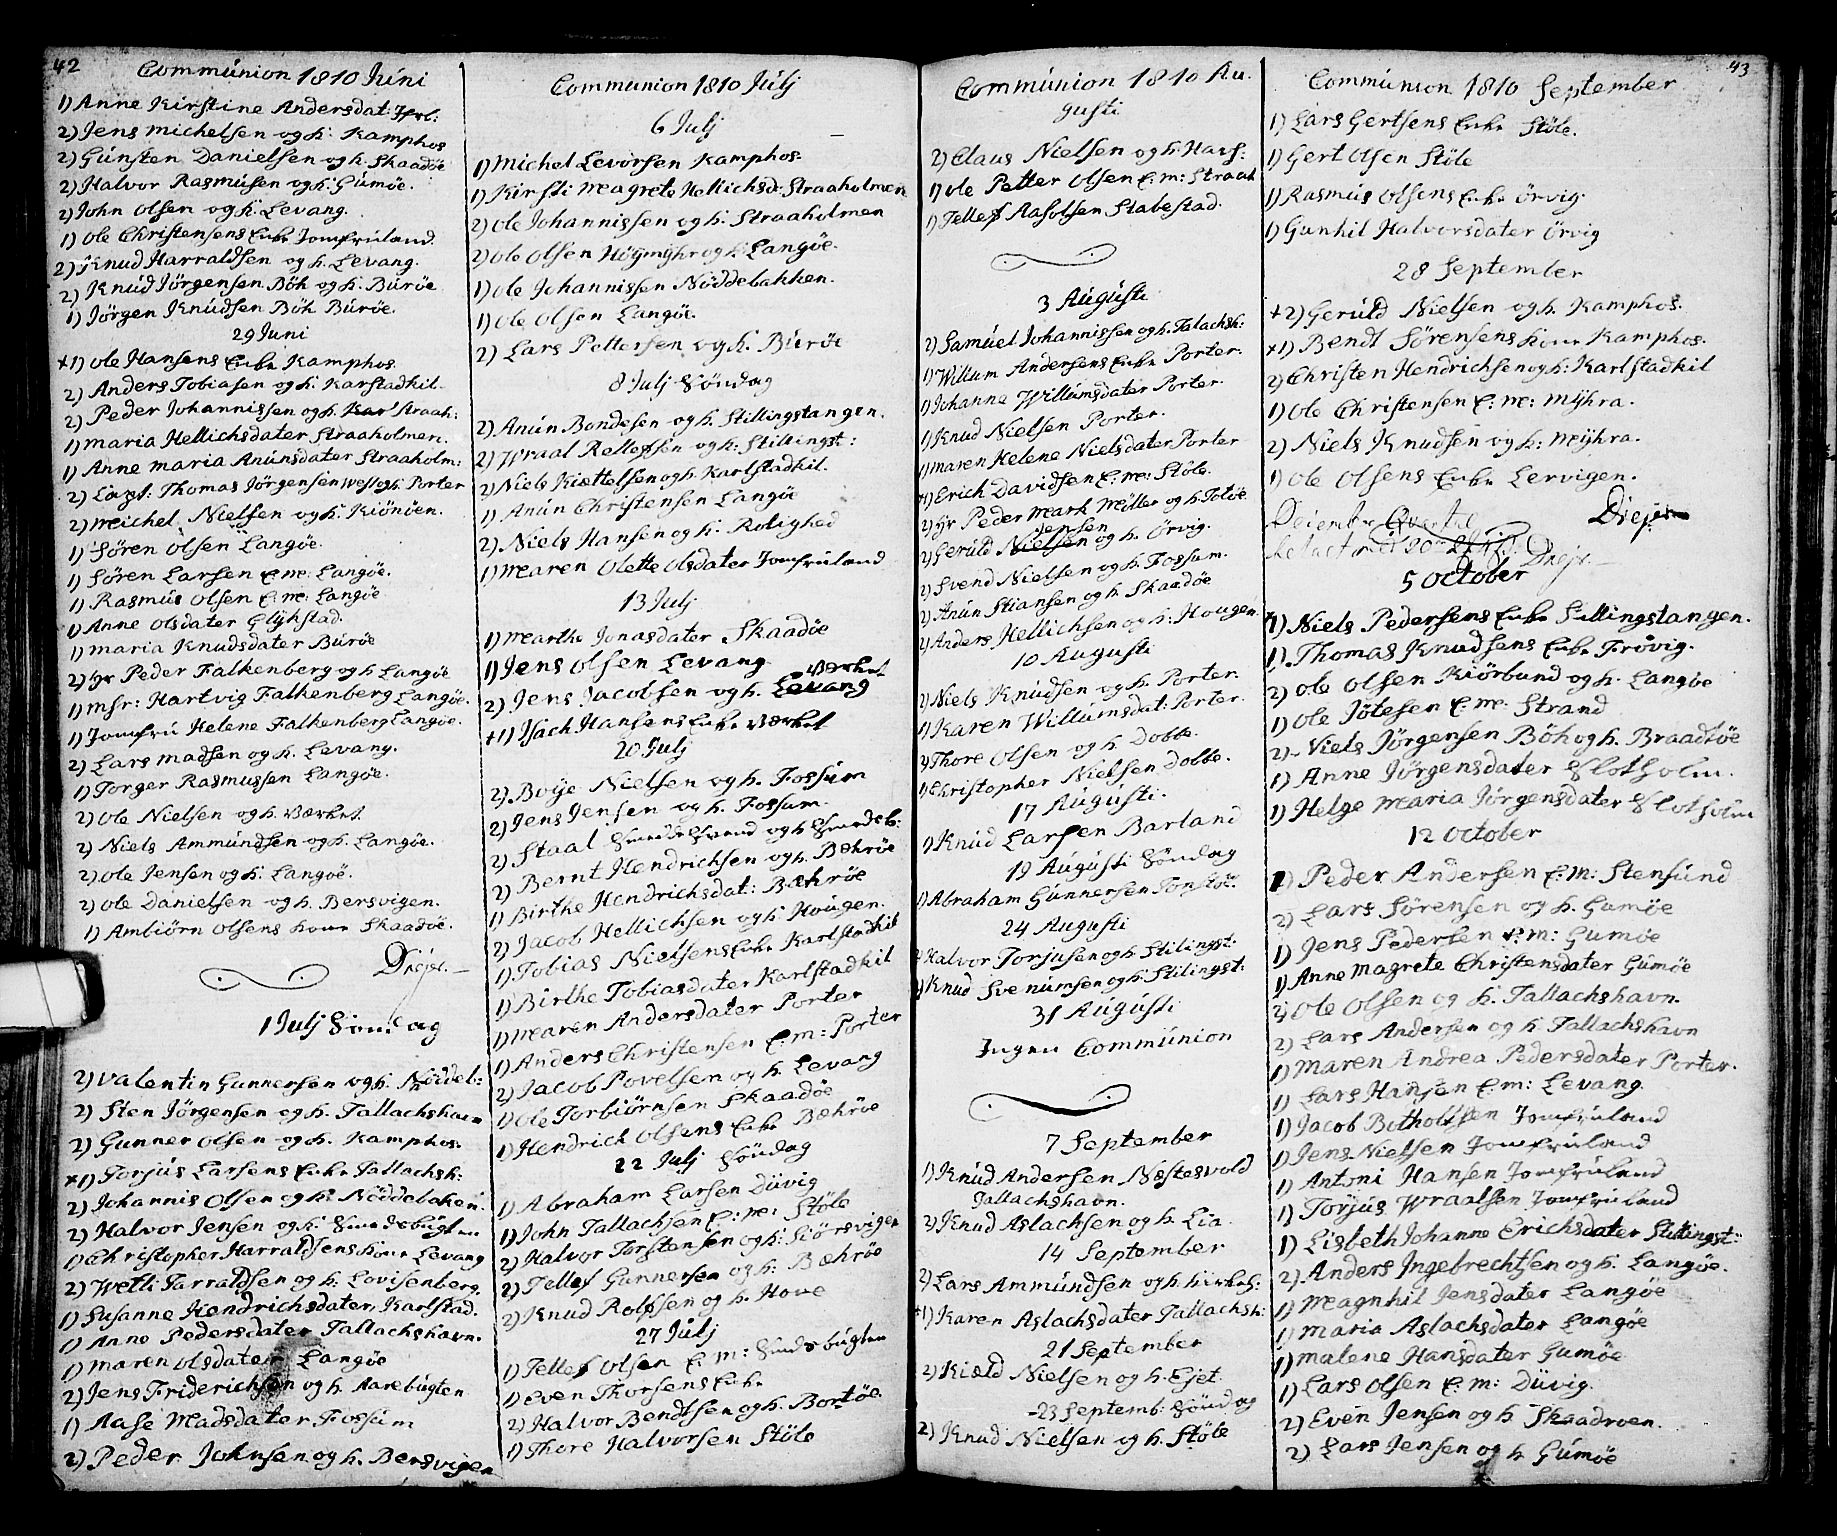 42
Communion 1810 Juni
1) Anne Kirstine Andersdat:
2) Jens Michelsen og h: Kamphos
2) Gunsten Danielsen og h. Skaadøe
2) Halvor Rasmusen og h: Gumøe.
2) John Olsen og h: Levang.
1) Ole Christensens Enke Jomfruland.
2) Knud Harraldsen og h. Levang.
2) Knud Jörgensen Böh og h. Buröe
1) Jörgen Knudsen Böh Buröe.
29 Juni
+1) Ole Hansens Enke Kamphos
2) Anders Tobiasen og h: Karstadkil.
2) Peder Johannissen og h. Straah:
1) Maria Hellichsdater Straaholmen.
1) Anne Maria Anunsdater Straaholm:
2) Thomas Jörgensen og h: Porter
2) Michel Nielsen og h: Kiönöen.
1) Sören Olsen Langöe.
1) Sören Larsen E:m: Langöe.
1) Rasmus Olsen E:m: Langöe
1) Anne Olsdater Glÿkstad.
1) Maria Knudsdater Buröe
2) Hr Peder Falkenberg og h Langöe
1) Msr: Hartvig Falkenberg Langöe.
1) Jomfru Helene Falkenberg Langöe.
2) Lars Madsen og h. Levang.
1) Torger Rasmussen Langöe.
2) Ole Nielsen og h. Værket.
2) Niels Ammundsen og h. Langöe.
2) Ole Jensen og h: Langöe.
2) Ole Danielsen og h. Bersvigen.
1) Ambiörn Olsens Kone Skaadöe.
Drejer.
1 Julj Sondag
2) Valentin Gunnersen og h. Nöddeb:
2) Sten Jörgensen og h. Tallachshavn
2) Gunner Olsen og h. Kamphos.
*1) Torjus Larsens Enke Tallachsh:
2) Johannis Olsen og h: Nöddebaken.
2) Halvor Jensen og h: Smedsbugten
1) Christopher Harraldsens Kone Levang
2) Wetli Tarraldsen og h: Lovisenberg.
1) Susanne Hendrichsdater, Karlstad.
1) Anne Pedersdater Tallachshavn.
1) Maren Olsdater Langöe
2) Jens Friderichsen og h. Aarebugten
1) Aase Madsdater Fossum
2) Peder Johnsen og h. Bersvigen
Communion 1810 Julj
6 Julj
1) Michel Levorsen Kamphos.
1) Kirsti Magrete Hellichsd: Straaholmen
2) Ole Johannissen og h. Straaholmen
2) Ole Olsen Höÿmÿhr og h: Langöe.
1) Ole Johannissen Nöddebakken.
1) Ole Olsen Langöe.
2) Lars Pettersen og h. Buröe
8 Julj Söndag
2) Anun Bondesen og h. Stillingstangen.
2) Wraal Rellefsen og h: Stillingst:
2) Niels Kiettelsen og h. Karlstadkil.
1) Anun Christensen Langöe
2) Niels Hansen og h. Rolighed
1) Maren Olette Olsdater Jomfruland
13 Julj
1) Marthe Jonasdater Skaadöe
1) Jens Olsen Levang
2) Jens Jacobsen og h. Levang Værket
+1) Isach Hansens Enke Værket
20 Julj
2) Boije Nielsen og h. Fossum
2) Jens Jensen og h. Fossum.
2) Staal og h Smedsb:
2) Bernt Hendrichsen og h. Bæhröe
1) Birthe Hendrichsdat: Bæhröe
2) Jacob Hellichsen og h: Hougen.
1) Tobias Nielsens Enke Karlstadkil
1) Birthe Tobiasdater Karlstadkil
1) Maren Andersdater Porter
1) Anders Christensen E:m: Porter
2) Jacob Povelsen og h. Levang
1) Ole Torbiörnsen Skaadöe
1) Hendrich Olsens Enke Bæhröe
22 Julj Söndag
1) Abraham Larsen Düvig
1) John Tallachsen E:m: Stöle
2) Halvor Torstensen og h: Siörsvigen
2) Tellef Gunnersen og h: Bæhröe
2) Knud Rolfsen og h. Hove
27 Julj
1) Tellef Olsen E.m: Smedsbugten
1) Even Thorsens Enke
2) Halvor Bendtsen og h. Bortöe.
1) Thore Halvorsen Stöle
Communion 1810 Au.
gusti
2) Claus Nielsen og h.
1) Ole Petter Olsen E:m: Straah
1) Tellef Aasolsen Stabestad.
3 Augusti
2) Samuel Johannissen og h. Talachsh:
1) Willum Andersens Enke Porter.
1) Johanne Willumsdater Porter.
1) Knud Nielsen Porter.
1) Maren Helene Nielsdater Porter
1) Erich Davidsen E:m: Stöle.
2) Hr Peder Mark Möller og h. Totöe
Jensen
2) Geruld Nielsen og h. Örvig.
2) Svend Nielsen og h. Fossum.
2) Anun Stiansen og h. Skaadöe
2) Anders Hellichsen og h: Hougen.
10 Augusti
2) Niels Knudsen og h. Porter
1) Karen Willumsdat: Porter.
2) Thore Olsen og h. Dobbe.
1) Christopher Nielsen Dobbe.
17 Augusti.
1) Knud Larsen Barland
19 Augusti Söndag
1) Abraham Gunnersen Tonstöe.
24 Augusti
2) Halvor Torjusen og h. Stilingst.
2) Knud Svenumsen og h: Stilingst:
31 Augusti
Ingen Communion
7 September
1) Knud Andersen Næstesvold
Tallachshavn.
2) Knud Aslachsen og h. Lia.
14 September
2) Lars Ammundsen og h.
*1) Karen Aslachsdater Tallachsh:
21 September
2) Kiæld Nielsen og h. Ejet.
23 Septemb: Söndag
2) Knud Nielsen og h. Stöle
43
Communion 1810 September
1) Lars Gertsens Enke Stöle.
1) Gert Olsen Stöle
1) Rasmus Olsens Enke Örvig.
1) Gunhil Halvorsdater Örvig
28 September
+2) Geruld Nielsen og h. Kamphos.
+1) Bendt Sörensens Kone Kamphos.
2) Christen Hendrichsen og h: Karlstadkil
1) Ole Christensen E:m: Mÿhra.
2) Niels Knudsen og h: Mÿhra.
1) Ole Olsens Enke Lervigen.
Drejer
Drejer
5 October
1) Niels Pedersens Enke Stillingstangen.
1) Thomas Knudsens Enke Frövig.
2) Ole Olsen Kiörbund og h. Langöe
1) Ole Jötesen E.m: Strand
2) Niels Jörgensen Böh og h. Braadtöe
1) Anne Jörgensdater Slotholm.
1) Helge Maria Jörgensdater Slotholm
12 October
1) Peder Andersen E.m: Stensund
2) Lars Sörensen og h. Gumöe
1) Jens Pedersen E:m: Gumöe
1) Anne Magrete Christensdater Gumöe
2) Ole Olsen og h. Tallachshavn.
2) Lars Andersen og h: Tallachshavn
1) Maren Andrea Pedersdater Porter.
1) Lars Hansen E:m: Levang.
1) Jacob Botholtsen Jomfruland
1) Jens Nielsen Jomfruland
1) Antoni Hansen Jomfruland
1) Torjus Wraalsen Jomfruland
1) Lisbeth Johanne Erichsdater Stillingst:
2) Anders Ingebrechtsen og h. Langöe.
1) Magnhil Jensdater Langöe
1) Maria Aslachsdater Langöe
1) Malene Hansdater Gumöe
1) Lars Olsen E.m: Düvig.
2) Even Jensen og h Skaadroen.
2) Lars Jensen og h Gumöe